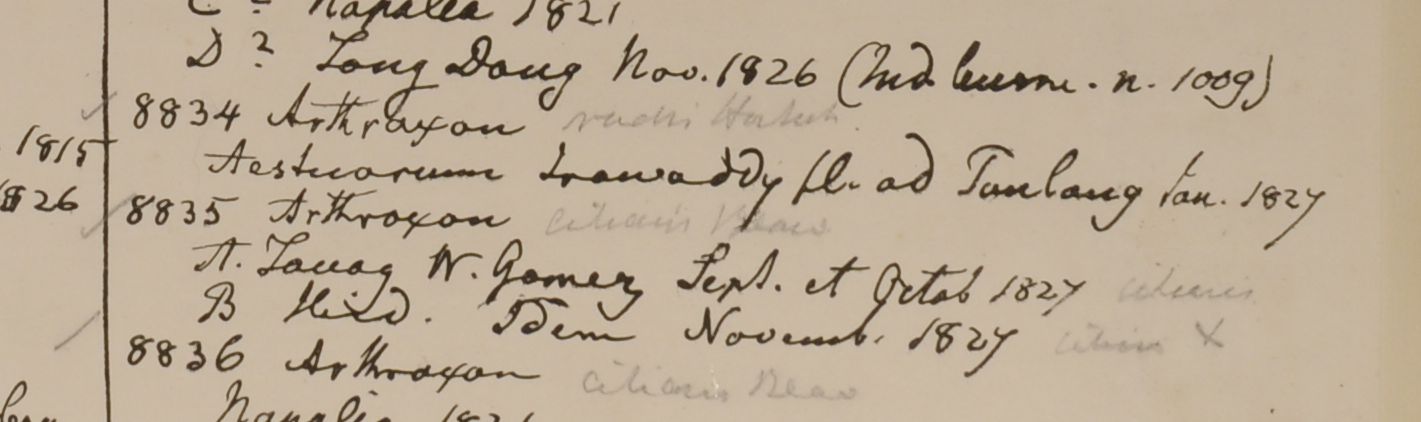 C ? Napalia 1821
D ? Tong Dong Nov. 1826 (Ind burm. n. 1009)
8834 Arthraxon
1815
Aestuarium Irawaddy fl. ad Tanlang Jan. 1827
1826
8835 Arthraxon ciliaris Beauv
A. Tavoy W. Gomez Sept. et Octob 1827 ciliaris
B Ibid. Idem Novemb. 1827 ciliaris X
8836 Arthraxon ciliaris Beauv
Napalia 1821